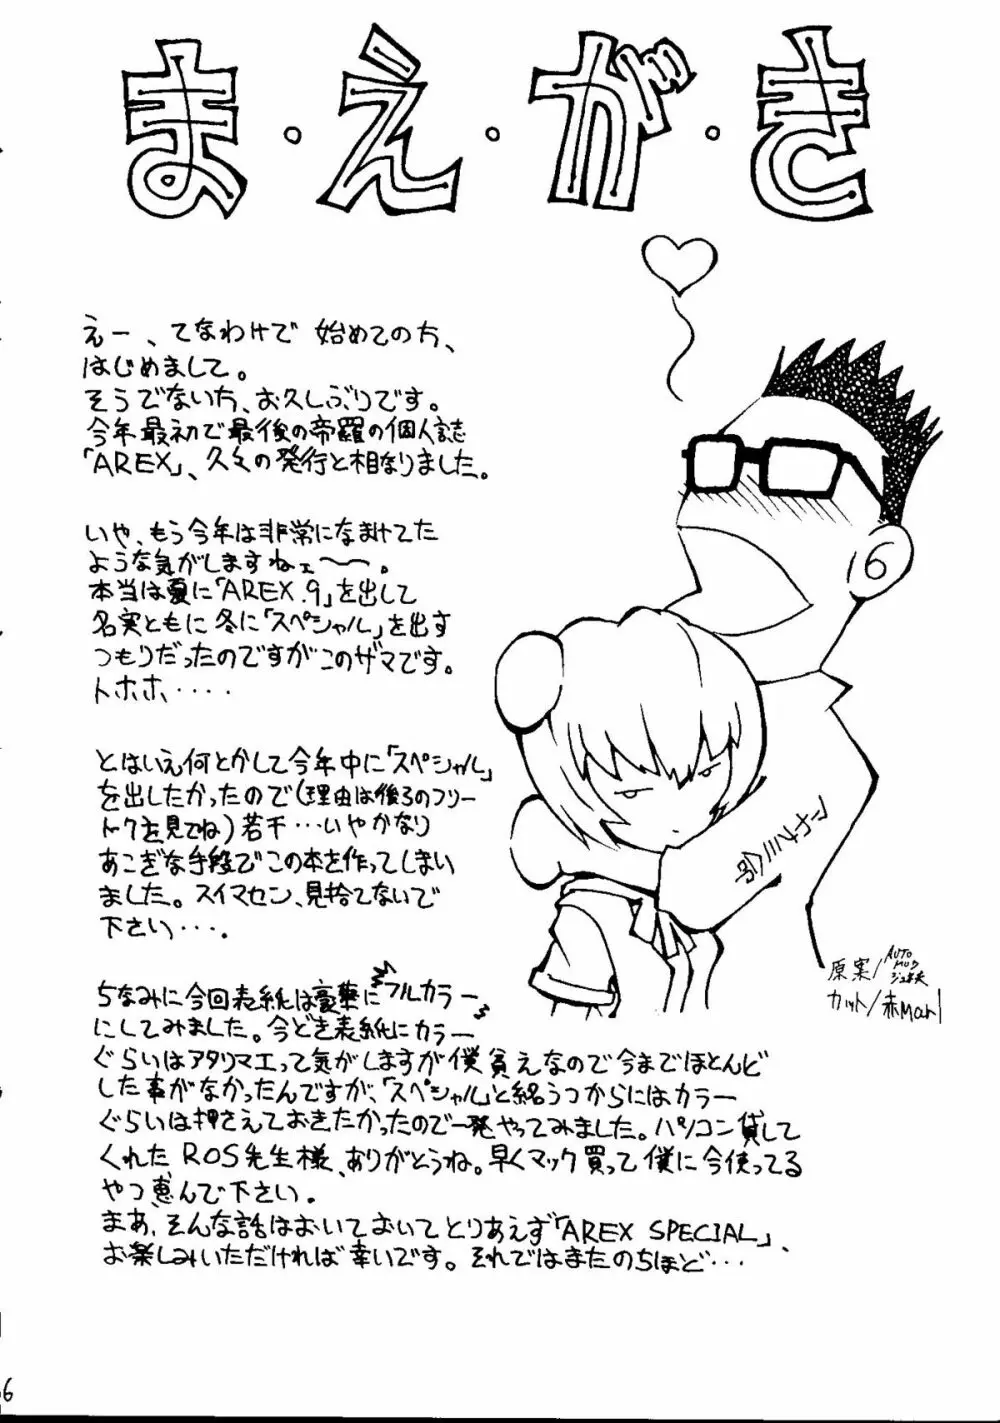 ま・え・が・き
えー、てなわけで 始めてのち、
はじめまして。
そうでないち、お久しぶりです。
今年最初で最後の帝羅の個人誌
「AREX」、久々の発行と相なりました。
いや、もう今年は非常になまけてた
ような気がしますねェ〜〜。
本当は夏に「AREX.9」を出して
名実ともに冬に「スペシャル」を出す
つもりだったのですがこのザマです。
トホホ、・・・・
とはいえ何とかして今年中に「スペシャル」
を出したかったので(理由は後ろのフリー
トークを見てね)若干・・・いやかなり
あこぎな手段でこの本を作ってしまい
ました。スイマセン、見捨てないで
下さい・・・。
ちなみに今回表紙は豪華にフルカラー
にしてみました。今どき表紙にカラー
ぐらいはアタリマエって気がしますが僕貧乏なので今までほとんど
した事がなかったんですが、「スペシャル」と銘うつからにはカラー
ぐらいは押さえておきたかったので一発やってみました。パソコン貸して
くれたROS先生様、ありがとうね。早くマック買って僕に今使ってる
やつ恵んで下さい。
まあ、そんな話はおいておいてとりあえず「AREX SPECIAL」、
お楽しみいただければ幸いです。それではまたのちほど・・・
原案/AUTO
カット/赤Marl
6